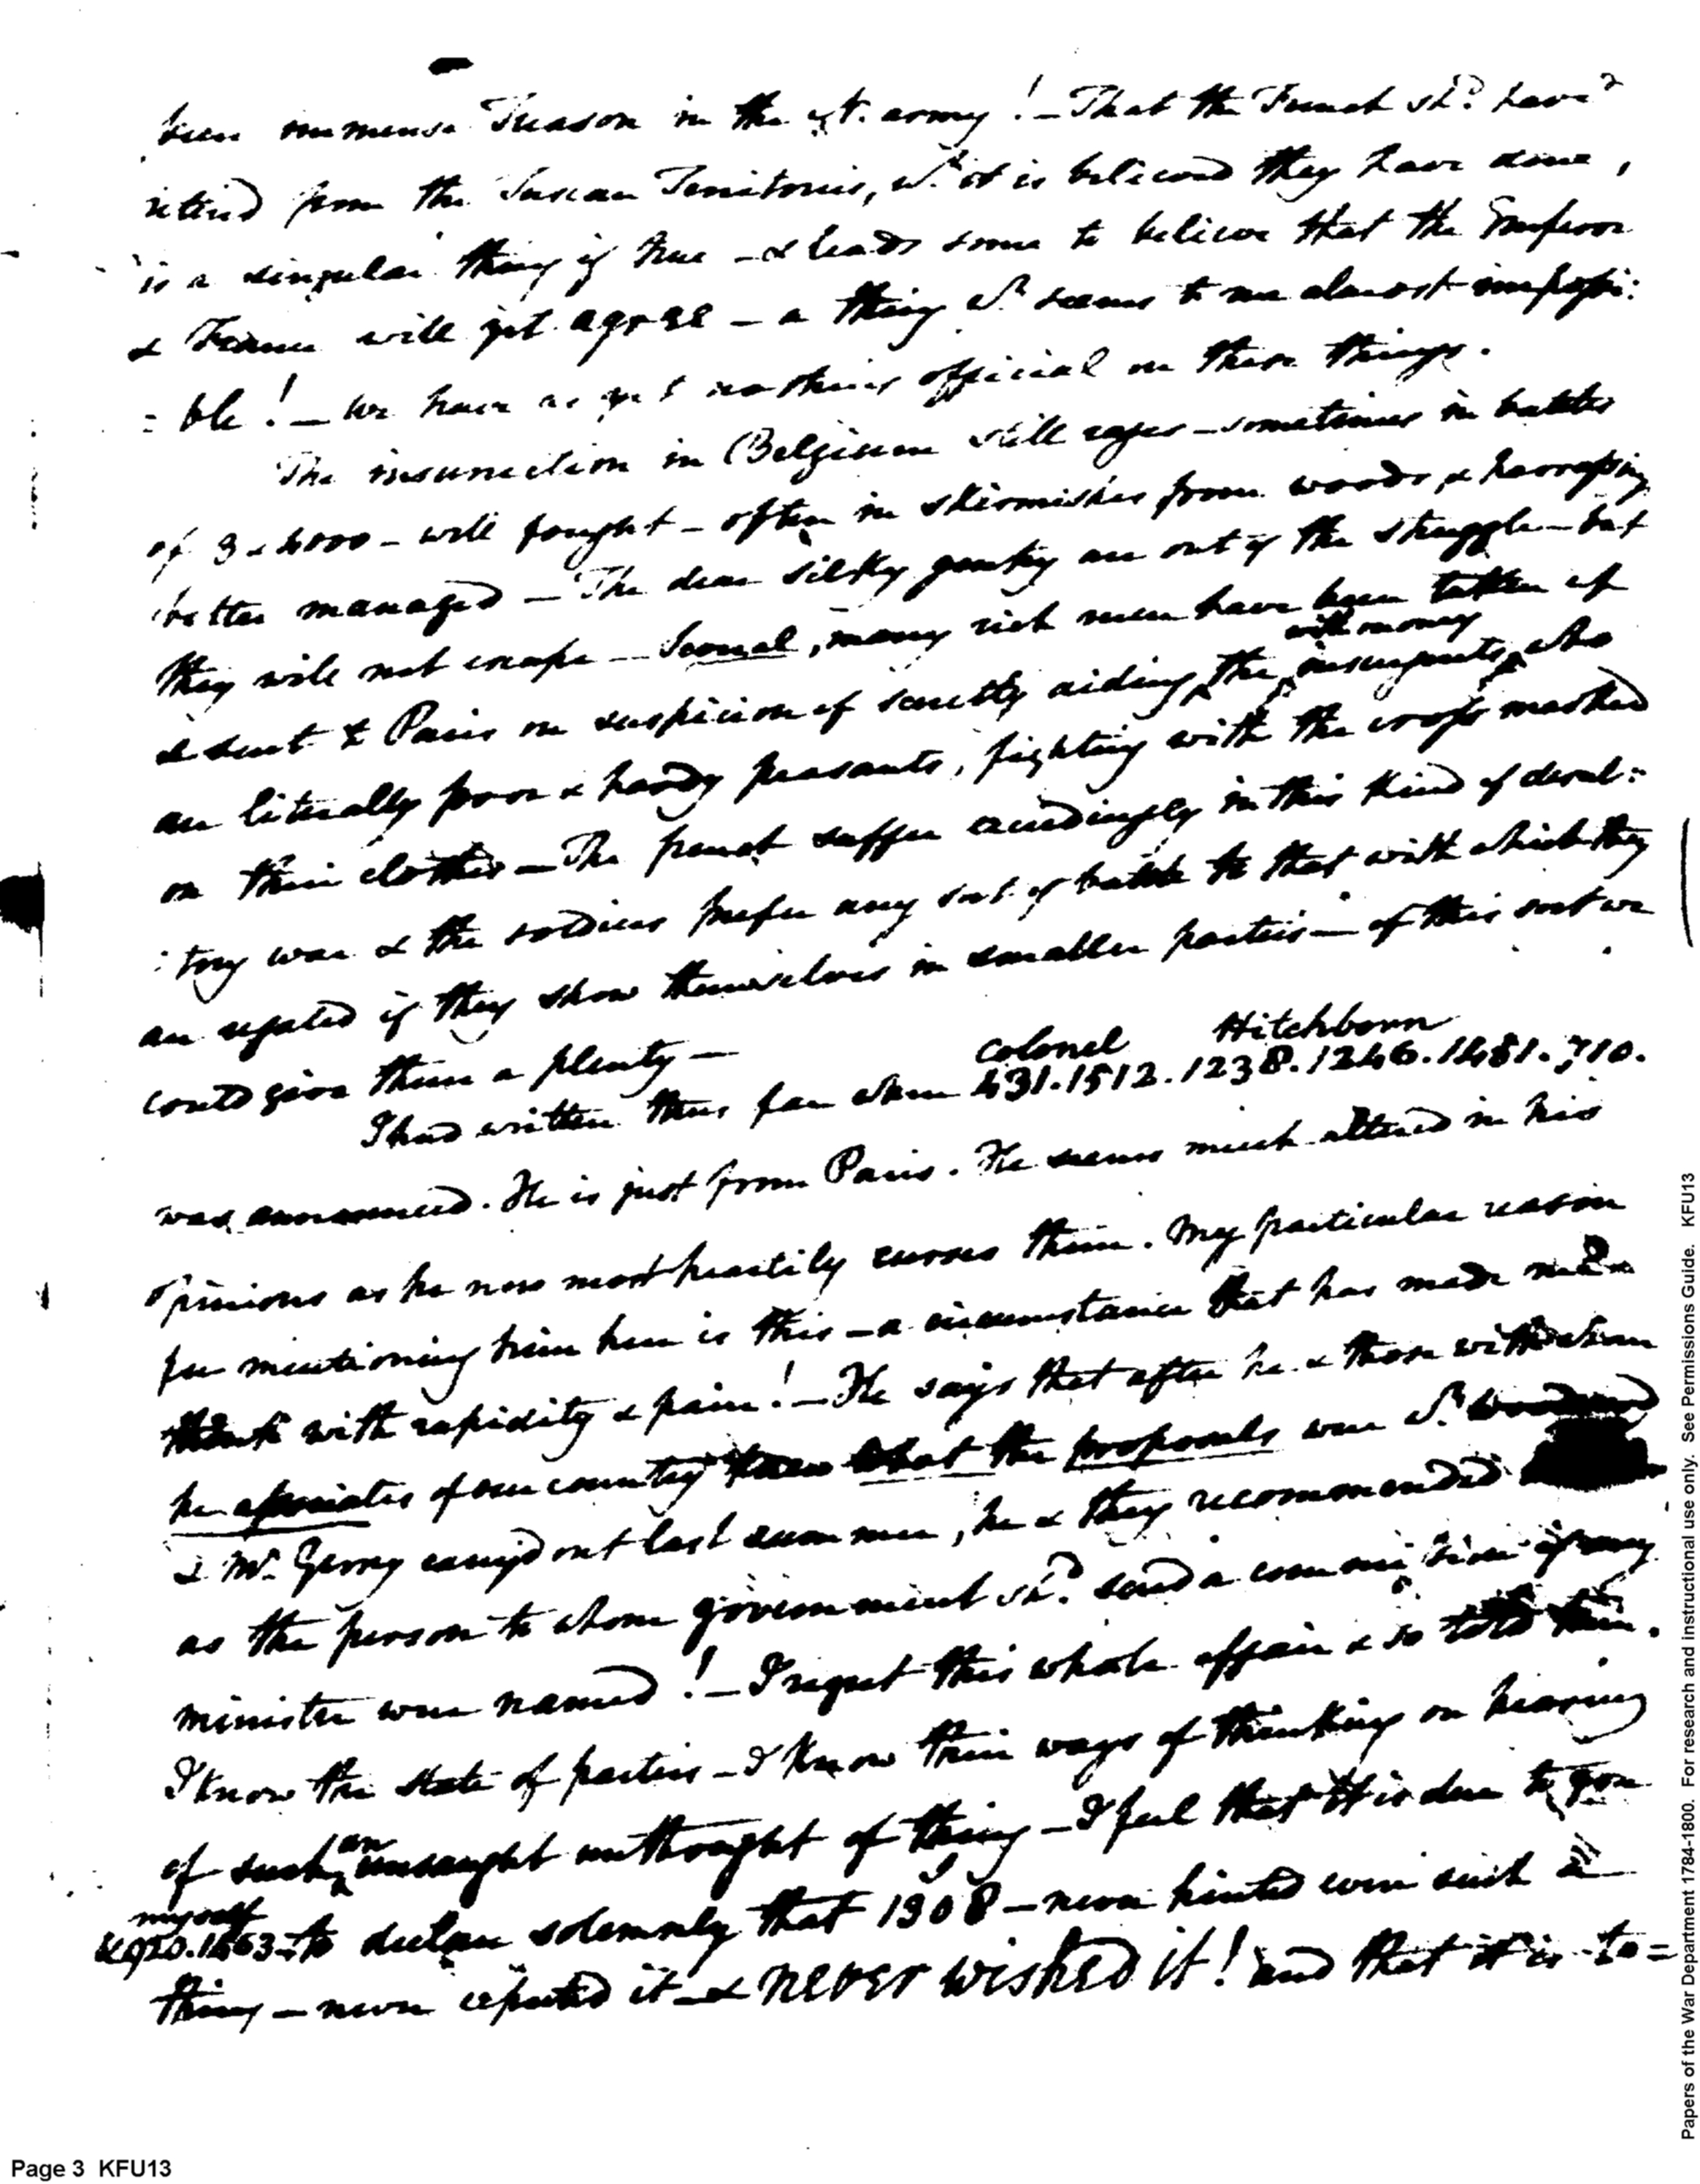 been immense Treason in the N. army! – That the French shd. have
retired from the Tuscan Territories, wh. it is believed they have done,
is a singular thing if true – & leads some to believe that the Emperor
& France will yet agree – a thing wh. seems to me almost impossi:
= ble! – We have as yet nothing official on these things.
The insurrection in Belgium still rages – sometimes in battles
of 3 & 4000 – well fought – often in skirmishes from woods, & harrassing
better managed – The dear silky gentry are out of the struggle – but
they will not escape – Several, many rich men have been taken up
with money
& sent to Paris on suspicion of secretly aiding the insurgents, who
are literally poor & hardy peasants, fighting with the cross marked
on their clothes – The french suffer exceedingly in this kind of desul:
: tory war & the soldiers prefer any sort of battle to that with which they
are if they show themselves in smaller parties – of this sort we
could give them a plenty –
colonel Hitchborn
I had written thus far when 431.1512.1238.1246.1481.710.
was announced. He is just from Paris. He seems much altered in his
opinions as he now most heartily curses them. My particular reason
for mentioning him here is this – a circumstance that has made me
think with rapidity & pain! – He says that after he & those with whom
he associates of our country knew what the proposals were wh.
& Mr. Gerry carryd out last summer, he & they recommended
as the person to whom government shd. send a commission if any
minister were named! – I regret this whole affair & so told him.
I know the state of parties – I know their ways of thinking on hearing
of such an unsought unthought of thing – I feel that it is due to you
myself I
& 920.1463 – to declare solemnly that 1308 – never hinted even such a
thing – never expected it – & NEVER WISHED it! and that it is to=
Page 3 KFU13
Papers of the War Department 1784-1800. For research and instructional use only. See Permissions Guide. KFU13